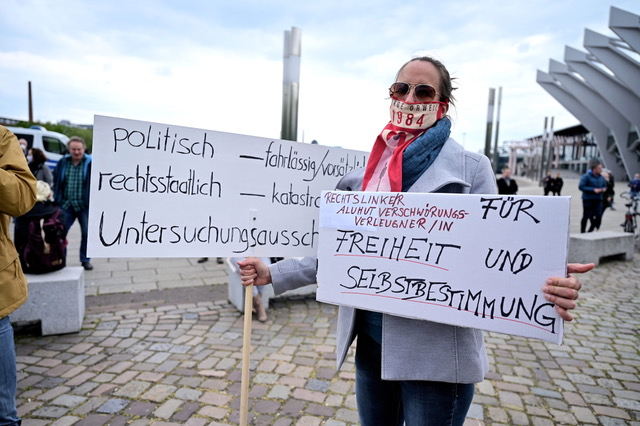 politisch – fahrlässig/vorsätzl
rechtsstaatlich – katastro
Untersuchungsaussch
GE ORWELL
1984
RECHTSLINKE/R
ALUHUT VERSCHWÖRUNGS-
VERLEUGNER/IN
FÜR
FREIHEIT UND
SELBSTBESTIMMUNG